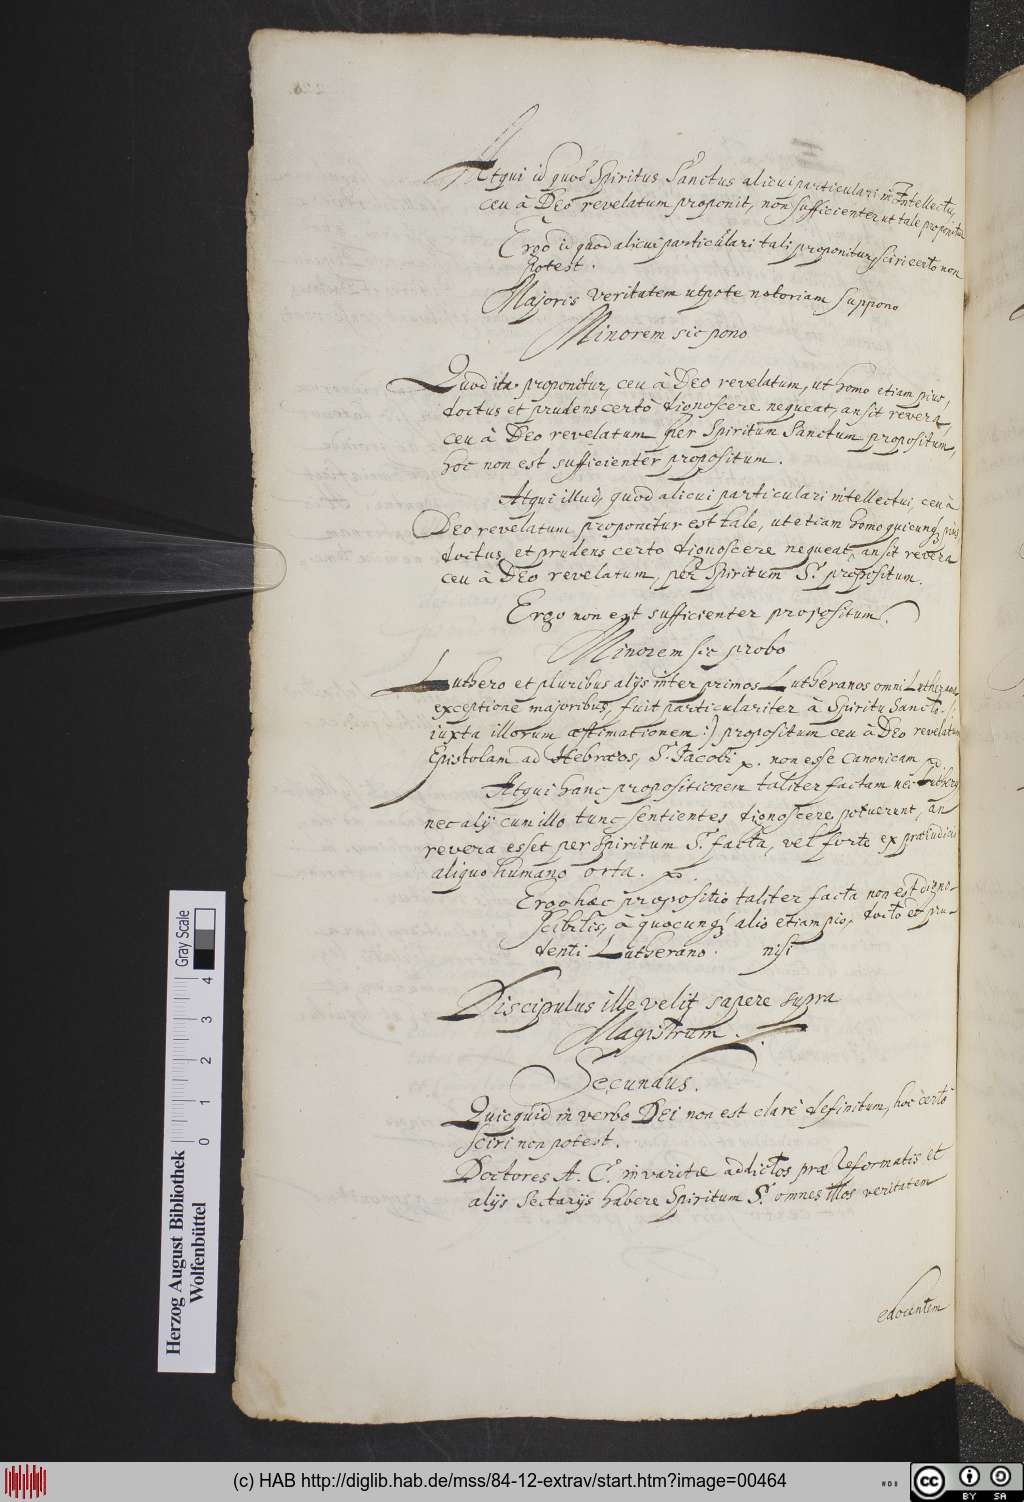 Atqui id quod Spiritus Sanctus alicui particulari intellectui,
ceu â Deo revelatum proponit, non sufficienter ut tale proponitur
Ergo id quod alicui particulari tali proponitur, sciri certo non
potest.
Majoris veritatem utpote notoriam suppono
Minorem sic pono
Quod ita proponitur, ceu â Deo revelatum, ut homo etiam pius,
doctus et prudens certò dignoscere nequeat, an sit revera,
ceu â Deo revelatum per Spiritum Sanctum propositum,
hoc non est sufficienter propositum.
Atqui illud, quod alicui particulari intellectui, ceu â
Deo revelatum, proponitur est tale, ut etiam homo quicunq; pius
doctus, et prudens certo dignoscere nequeat, an sit revera
ceu â Deo revelatum, per Spiritum S. propositum.
Ergo non est sufficienter propositum.
Minorem sic probo
Luthero et pluribus alijs inter primos Lutheranos omni Lutherana
exceptione majoribus, fuit particulariter â Spiritu Sancto (:
iuxta illorum æstimationem :) propositum ceu â Deo revelatum
Epistolam ad Hebræos, S. Jacobi p. non esse canonicam p.
Atqui hanc propositionem taliter factam nec Lutherus
nec alij cum illo tunc sentientes dignoscere potuerunt, an
revera esset per Spiritum S. facta, vel forte ex præiudicio
aliquo humano orta. p.
Ergo hæc propositio taliter facta non est digno-
scibilis, â quocunq; alio etiam pio, docto et pru-
denti Lutherano. nisi
Discipulus ille velit sapere supra
Magistrum.
Secundus.
Quicquid in verbo Dei non est clarè definitum, hoc certò
sciri non potest.
Doctores A. C. invaritæ addictos præ Reformatis et
alijs Sectarijs habere Spiritum S. omnes illos veritatem
edocentem
Herzog August Bibliothek
Wolfenbüttel
Gray Scale
0 1 2 3 4
(c) HAB http://diglib.hab.de/mss/84-12-extrav/start.htm?image=00464
WDB
cc BY SA